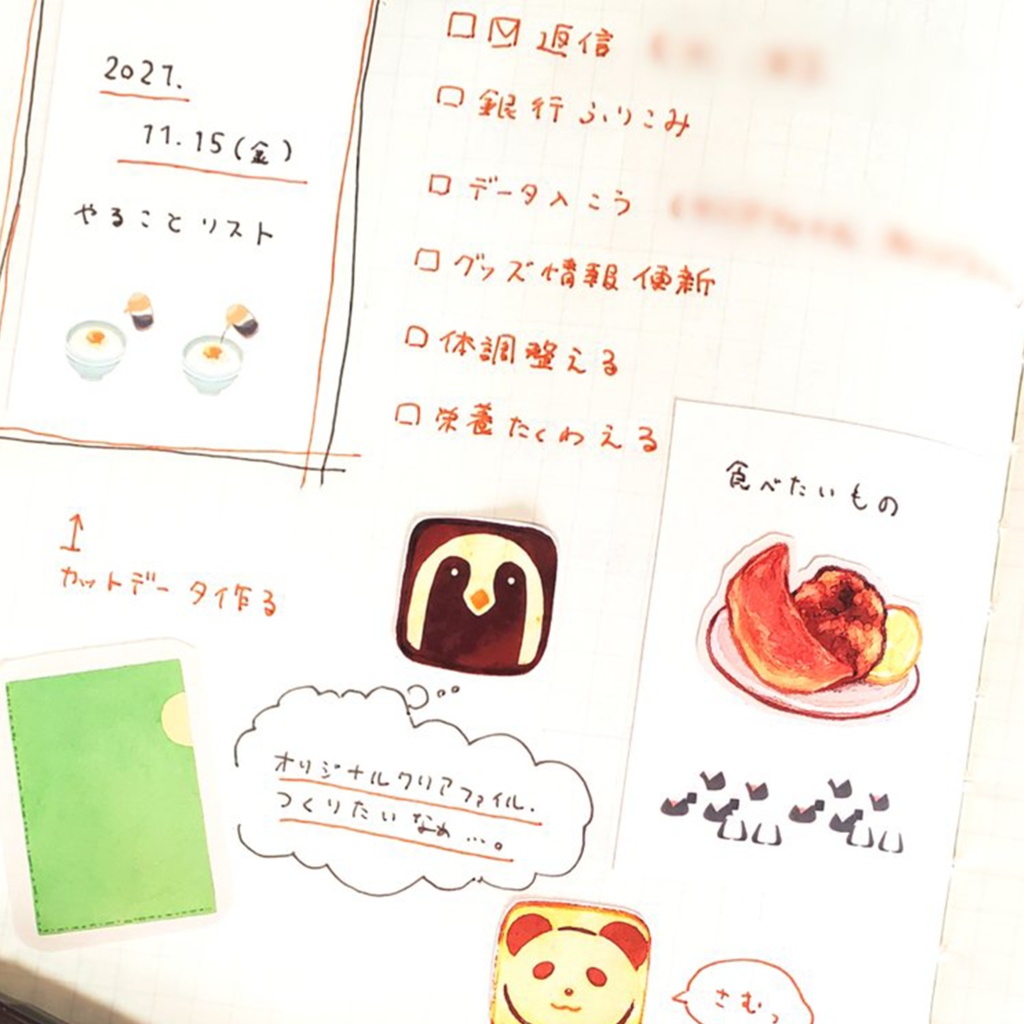 2021.
11.15(金)
やることリスト
返信
銀行ふりこみ
データ入こう
グッズ情報更新
体調整える
栄養たくわえる
↑
カットデータ作る
食べたいもの
オリジナルクリアファイル.
つくりたいなぁ…。
さむっ